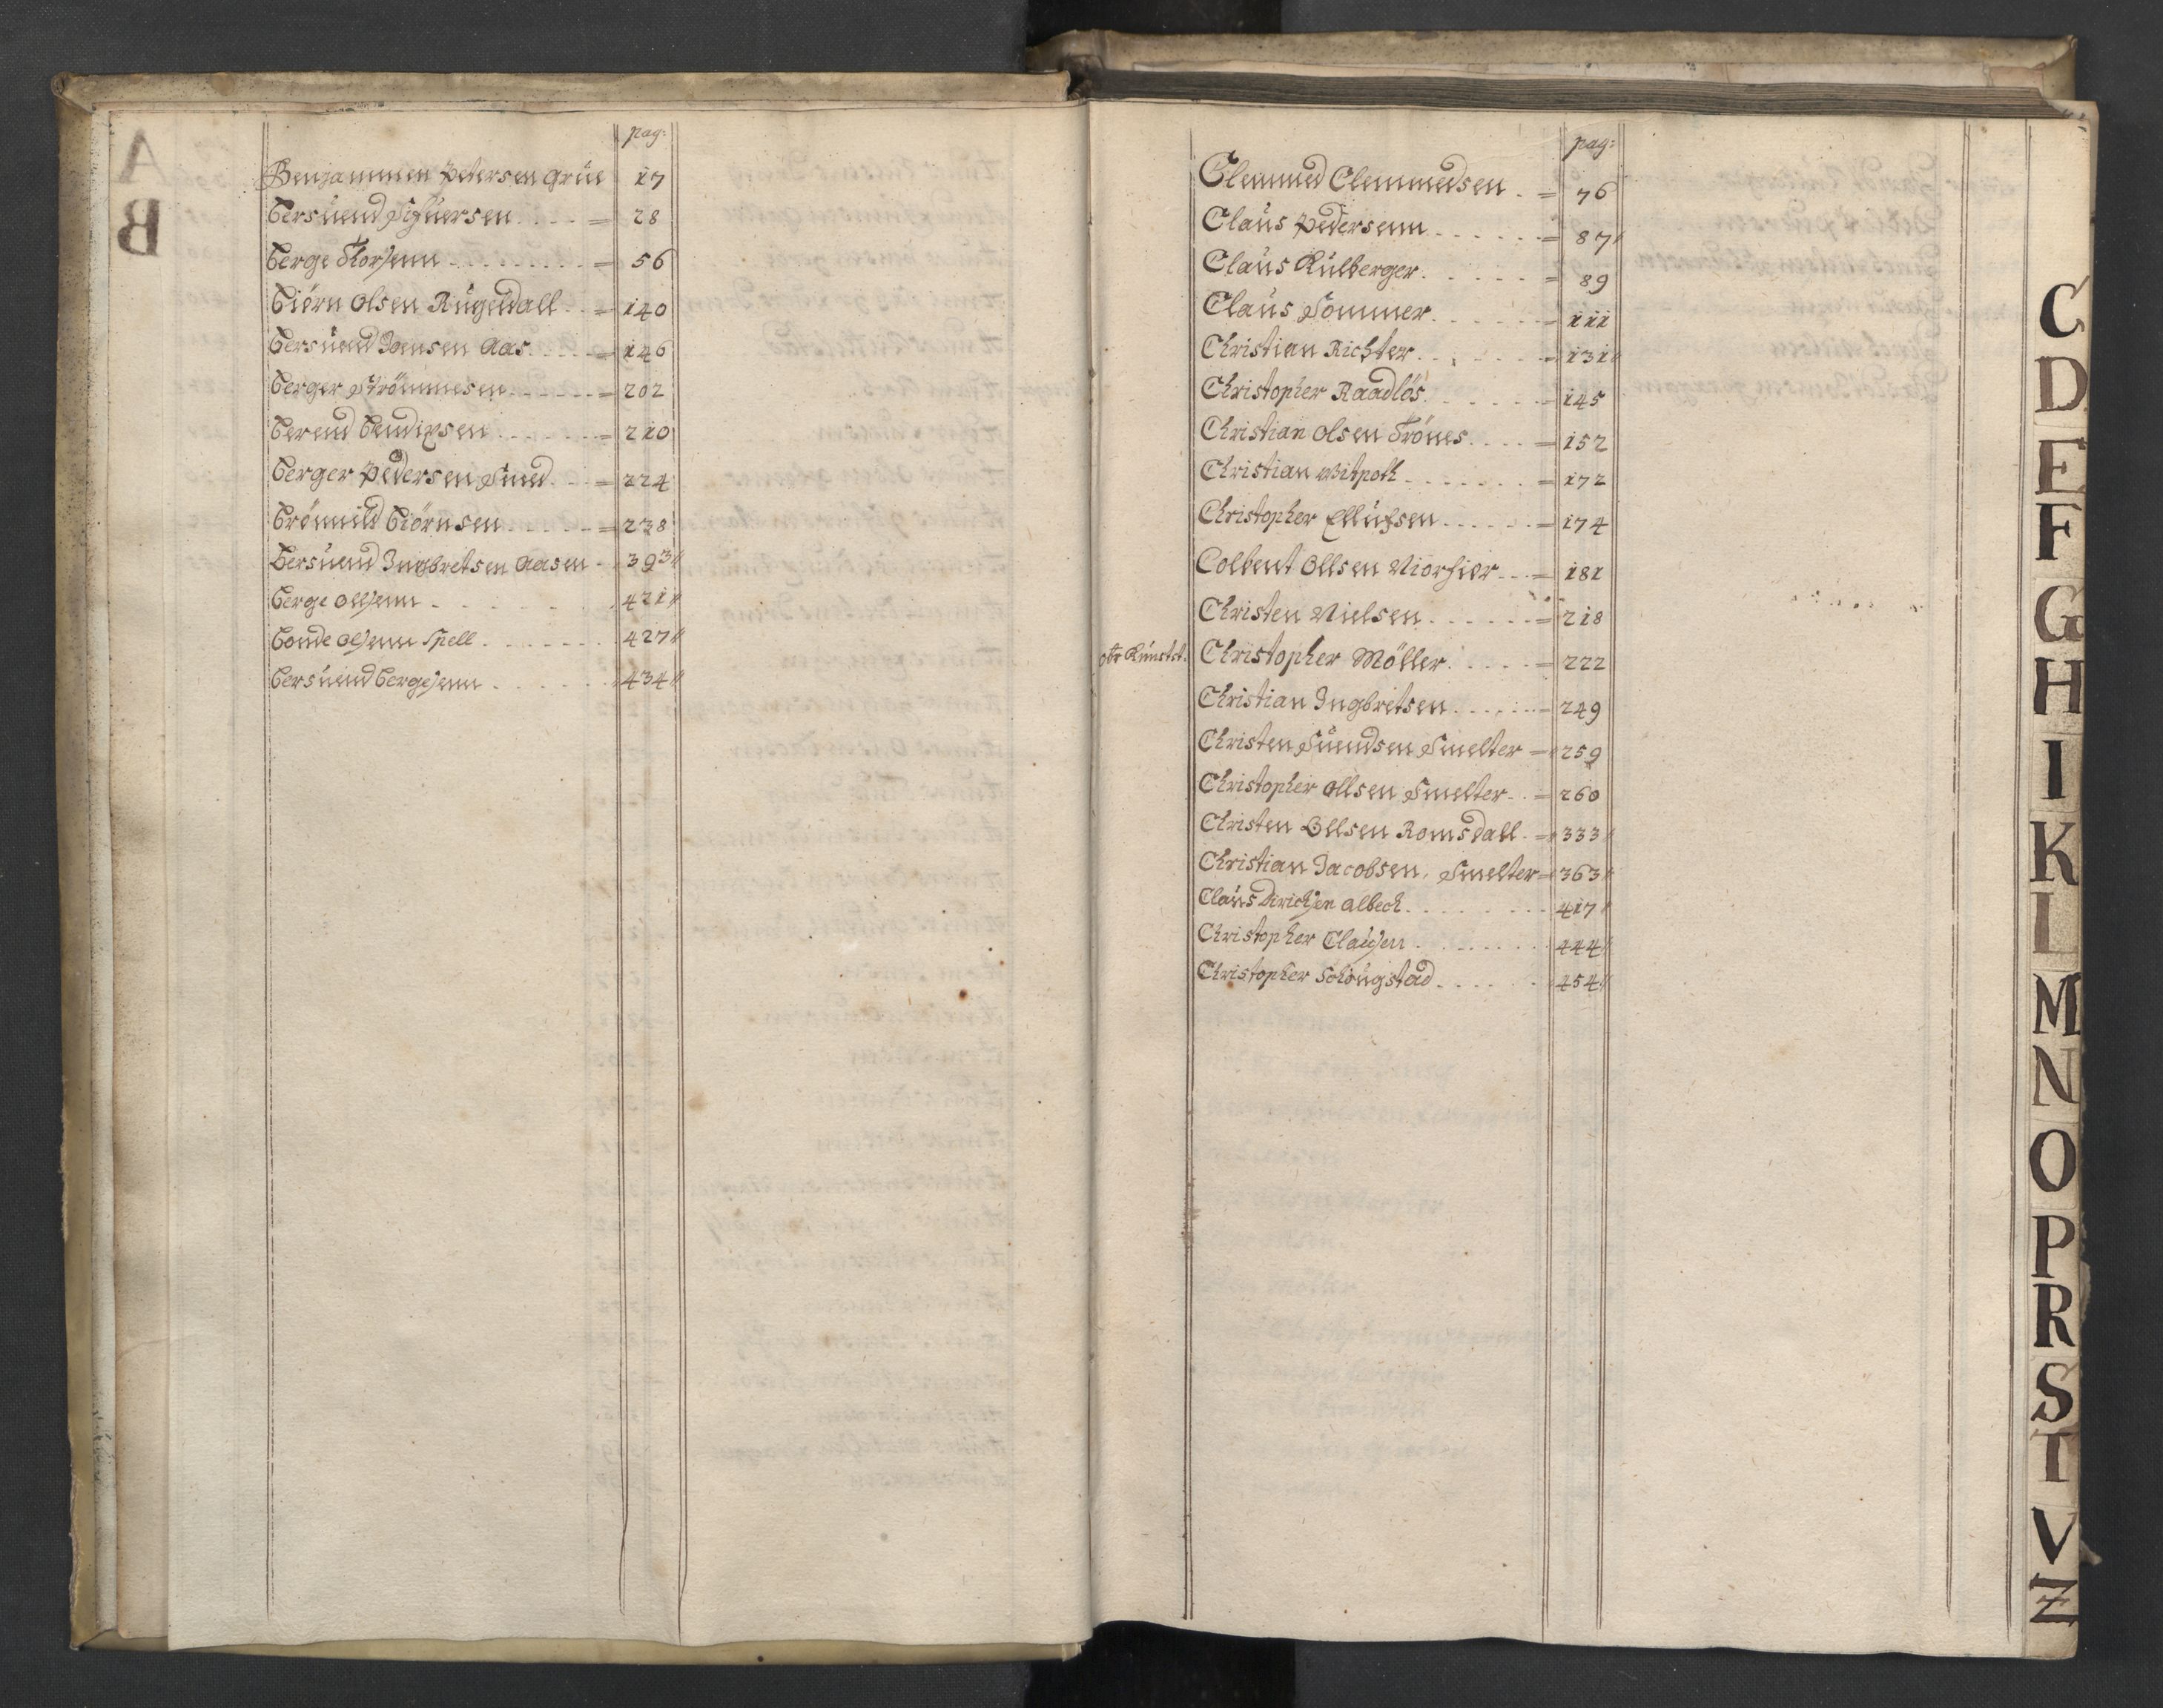 A
B
pag:
Benjammen Pedersen Grüe 17
Bersüend Sifüersen = 28
Berge Torsenn = 56
Biörn Olsen Rügeldall = 140
Bersüend Joensen Aas = 146
Berger Strömmesen = 202
Berend Bendixsen = 210
Berger Pedersen Smed = 224
Brönnild Biörnsen = 238
Bersüend Ingbretsen Aasen 393
Berge Olsenn 421
Bonde Olsenn Spell 427
Bersüend Bergesenn 434
pag:
Clemmed Clemmedsen = 76
Claüs Pedersenn = 87
Claüs Külberger = 89
Claüs Sommer = 111
Christian Richter = 131
Christopher Raadlös = 145
Christian Olsen Trönes = 152
Christian Witpoth = 172
Christopher Ellüfsen = 174
Colbent Ollsen = 181
Christen Nielsen = 218
Künstst. Christopher Möller = 222
Christian Ingbretsen = 249
Christen Süendsen Smelter = 259
Christopher Ollsen Smelter = 260
Christen Ollsen Romsdall = 333
Christian Jacobsen, Smelter = 363
Claüs Dirichsen Albech 417
Christopher Claüsen 444
Christopher Schöugstad 454
C
D
E
F
G
H
I
K
L
M
N
O
P
R
S
T
V
Z